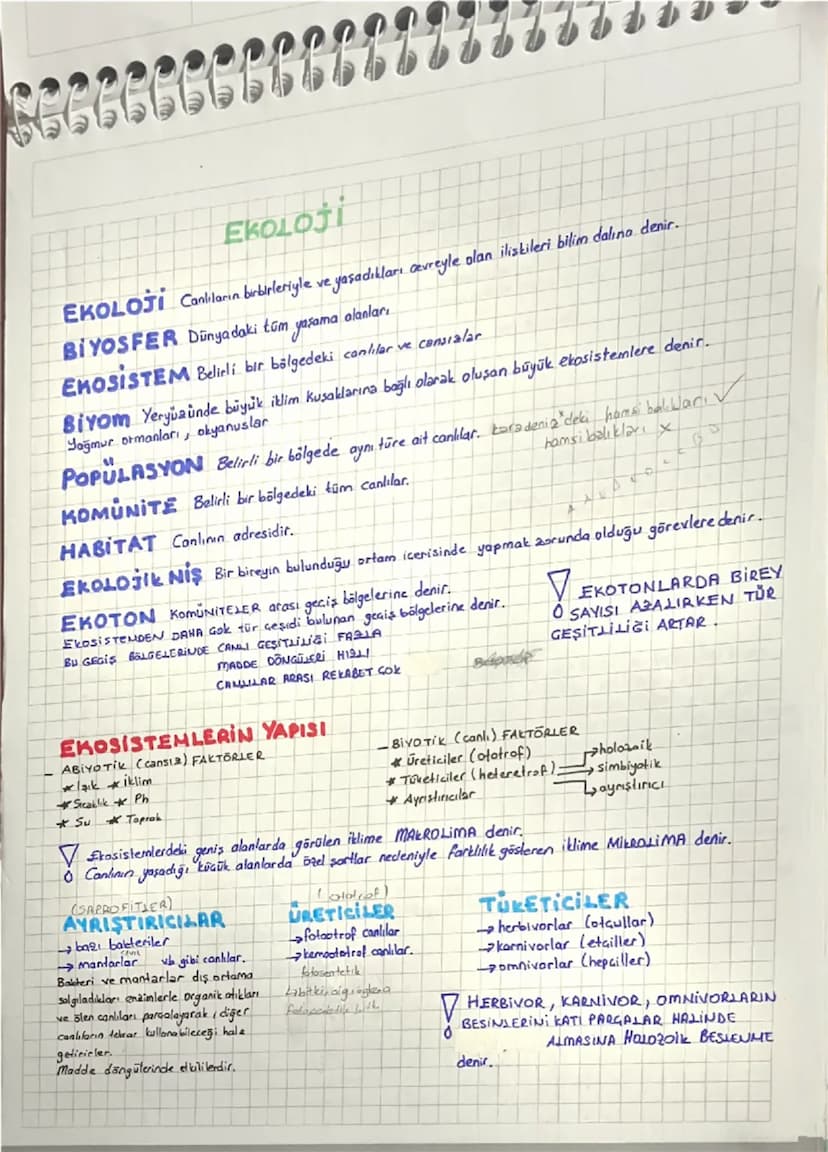 EKOLOJİ
EKOLOJİ Canlıların birbirleriyle ve yaşadıkları çevreyle olan ilişkileri bilim dalına denir.
BİYOSFER Dünyadaki tüm yaşama alanları
EKOSİSTEM Belirli bir bölgedeki canlılar ve cansızlar
BİYOM Yeryüzünde büyük iklim kuşaklarına bağlı olarak oluşan büyük ekosistemlere denir.
Yağmur ormanları, okyanuslar
POPÜLASYON Belirli bir bölgede aynı türe ait canlılar. karadeniz'deki hamsi balıkları ✓
hamsi balıkları x
KOMÜNİTE Belirli bir bölgedeki tüm canlılar.
HABİTAT Canlının adresidir.
EKOLOJİK NİŞ Bir bireyin bulunduğu ortam içerisinde yapmak zorunda olduğu görevlere denir.
EKOTON KOMÜNİTELER arası geçiş bölgelerine denir.
EKOSİSTEMDEN DAHA çok tür çeşidi bulunan geçiş bölgelerine denir.
BU GEÇİŞ BÖLGELERİNDE CANLI ÇEŞİTLİLİĞİ FAZLA
MADDE DÖNGÜLERİ HIZLI
CANLILAR ARASI REKABET ÇOK
! EKOTONLARDA BİREY
SAYISI AZALIRKEN TÜR
ÇEŞİTLİLİĞİ ARTAR.
EKOSİSTEMLERİN YAPISI
- ABİYOTİK (cansız) FAKTÖRLER
* Işık * İklim
* Sıcaklık * Ph
* Su * Toprak
- BİYOTİK (canlı) FAKTÖRLER
* Üreticiler (ototrof)
* Tüketiciler (heteretrof) → holozoik
→ simbiyotik
→ ayrıştırıcı
* Ayrıştırıcılar
! Ekosistemlerdeki geniş alanlarda görülen iklime MAKROLİMA denir.
Canlının yaşadığı küçük alanlarda özel şartlar nedeniyle farklılık gösteren iklime MİKROLİMA denir.
(SAPROFİTLER)
AYRIŞTIRICILAR
→ bazı bakteriler
→ mantarlar vb gibi canlılar.
Bakteri ve mantarlar dış ortama
salgıladıkları enzimlerle organik atıkları
ve ölen canlıları parçalayarak, diğer
canlıların tekrar kullanabileceği hale
getirirler.
Madde döngülerinde etkilidir.
(ototrof)
ÜRETİCİLER
→ fotootrof canlılar
→ kemoototrof canlılar.
fotosentetik
TÜKETİCİLER
→ herbivorlar (otçullar)
→ karnivorlar (etçiller)
→ omnivorlar (hepçiller)
! HERBİVOR, KARNİVOR, OMNİVORLARIN
BESİNLERİNİ KATI PARÇALAR HALİNDE
ALMASINA HOLOZOİK BESLENME
denir.